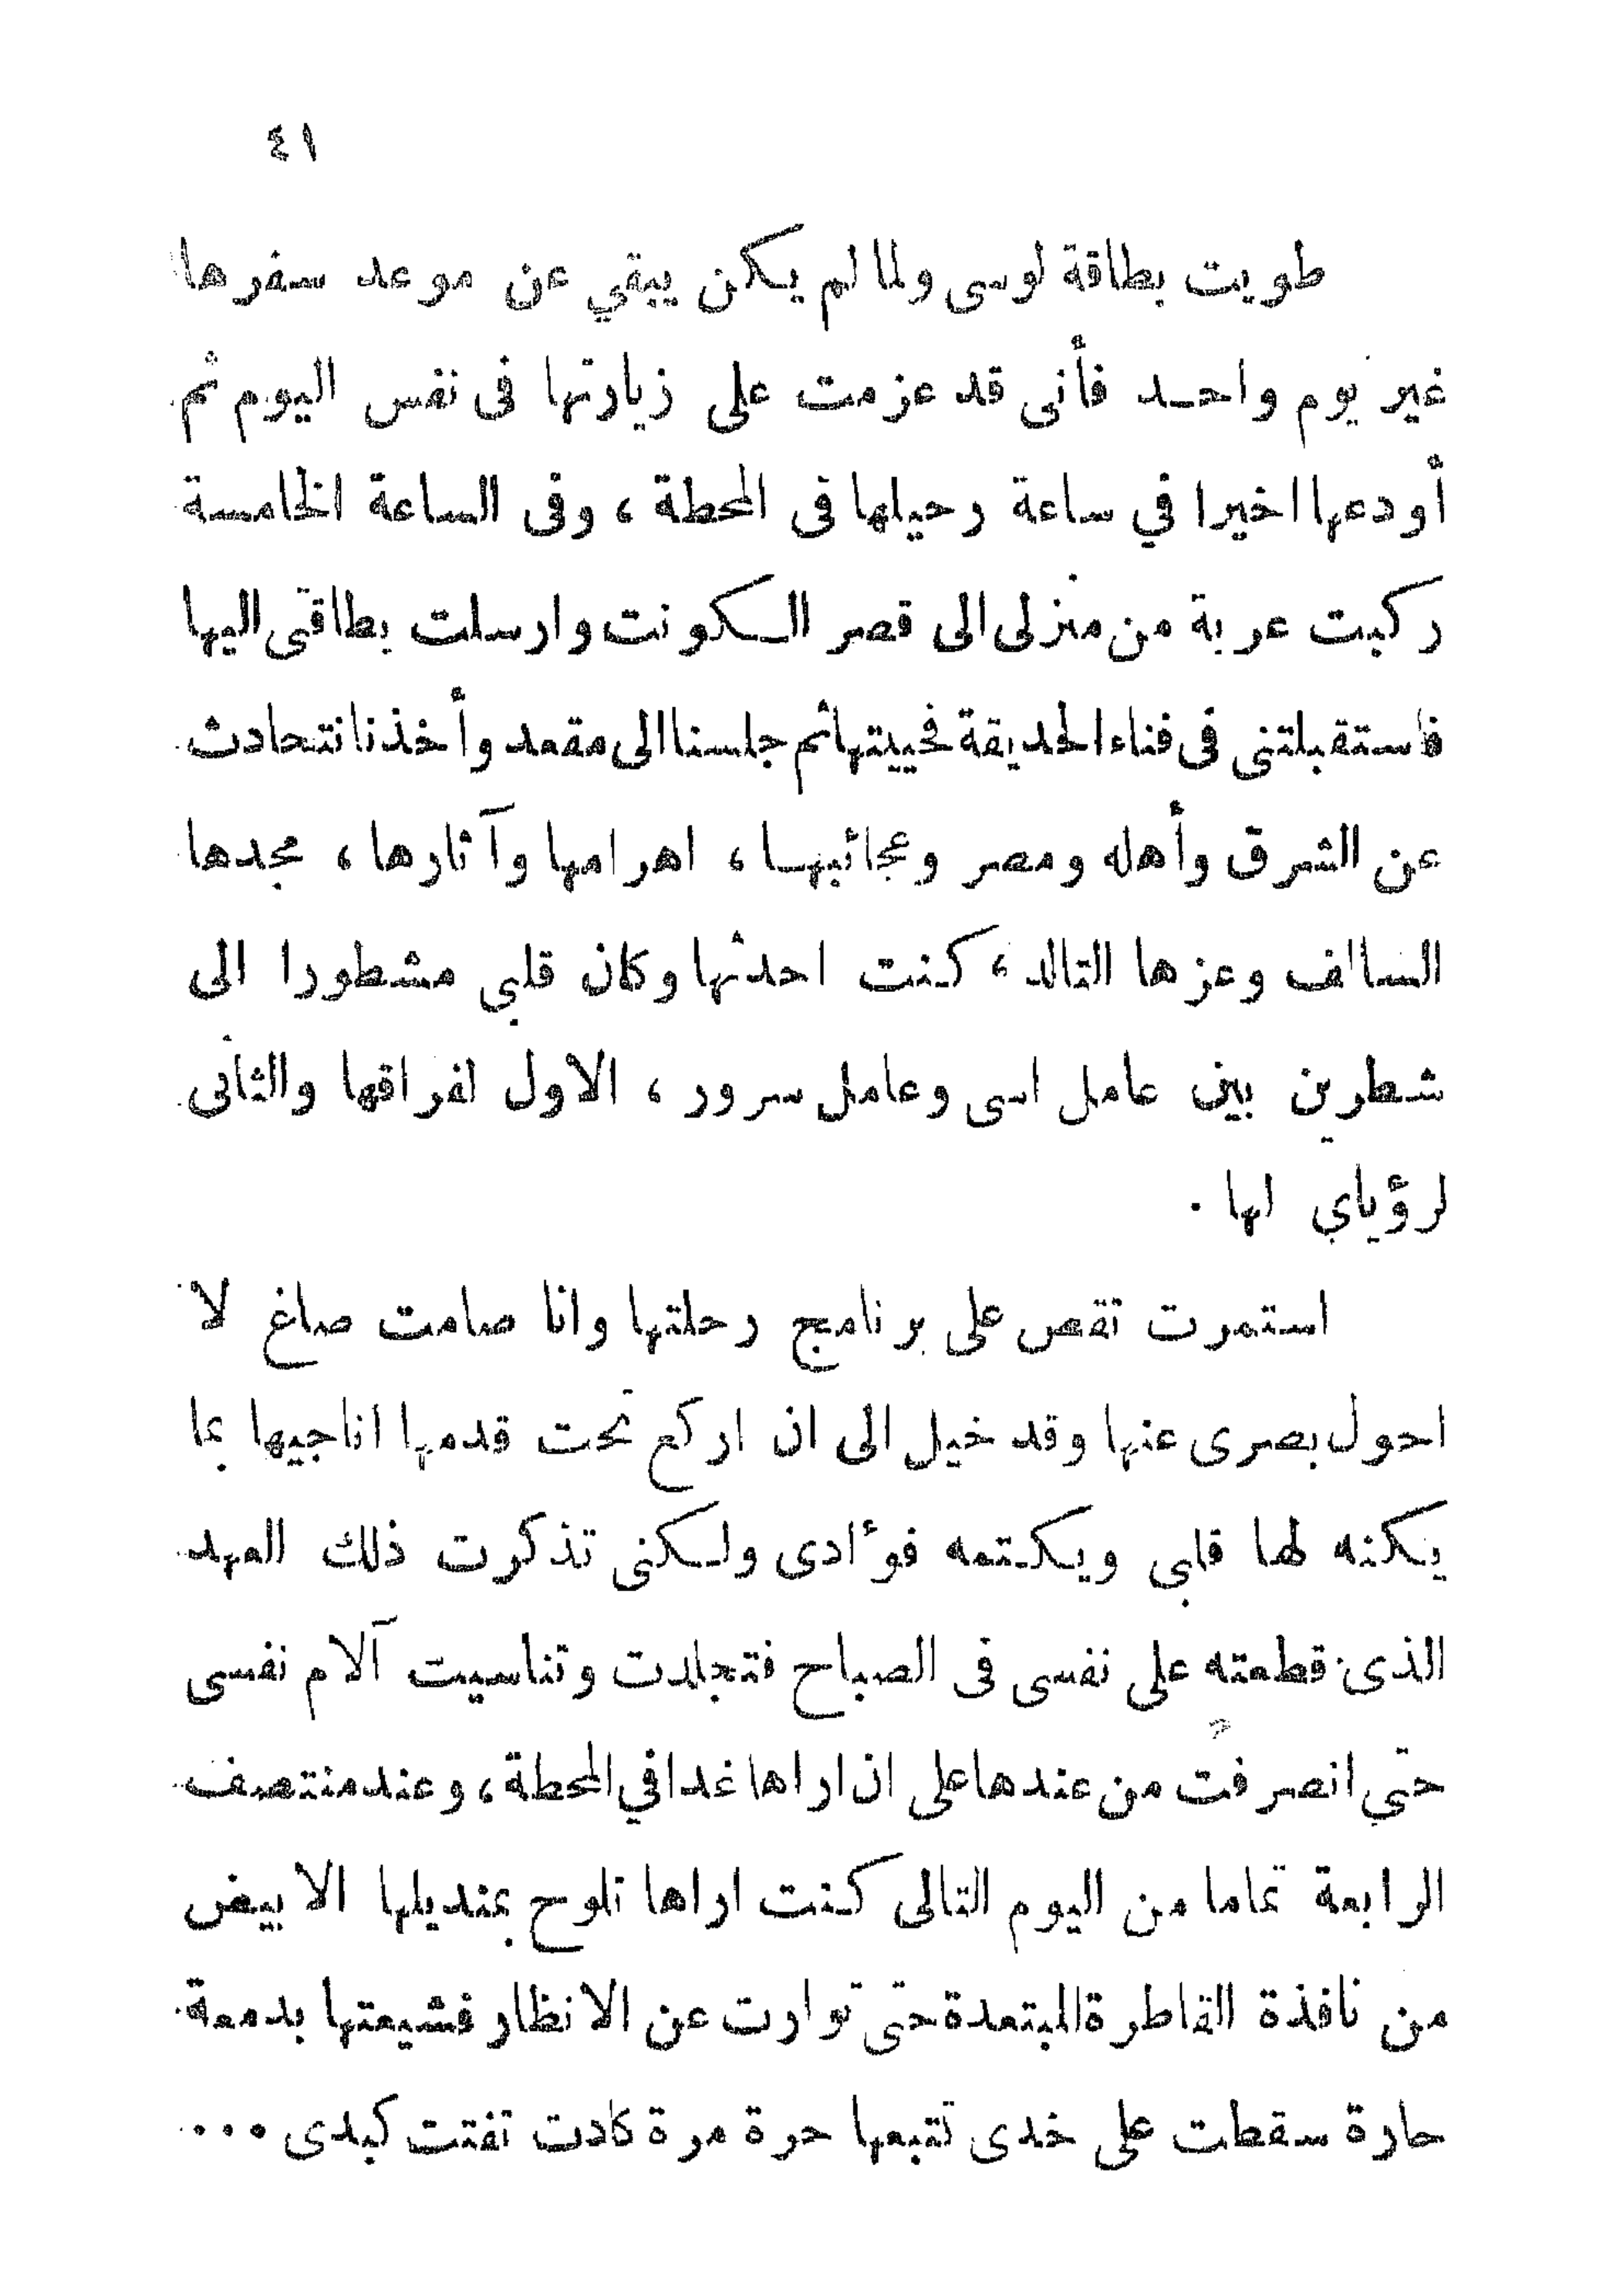 ٤١
طويت بطاقة لوسى ولما لم يكن يبقي عن موعد سفرها
غير يوم واحد فأنى قد عزمت على زيارتها فى نفس اليوم ثم
أودعها اخيرا في ساعة رحيلها فى المحطة ، وفى الساعة الخامسة
ركبت عربة من منزلى الى قصر الكونت وارسلت بطاقتى اليها
فاستقبلتنى فى فناء الحديقة فحييتها ثم جلسنا الى مقعد وأخذنا نتحادث
عن الشرق وأهله ومصر وعجائبها ، اهرامها وآثارها ، مجدها
السالف وعزها التالد ، كنت احدثها وكان قلبى مشطورا الى
شطرين بين عامل اسى وعامل سرور ، الاول لفراقها والثانى
لرؤياي لها .
استمرت تقص على برنامج رحلتها وانا صامت صاغ لا
احول بصرى عنها وقد خيل الى ان اركع تحت قدميها اناجيها بما
يكنه لها قلبى ويكتمه فوءادى ولكنى تذكرت ذلك العهد
الذى قطعته على نفسى فى الصباح فتجلدت وتناسيت آلام نفسى
حتي انصرفت من عندها على ان اراها غدا في المحطة ، وعند منتصف
الرابعة تماما من اليوم التالى كنت اراها تلوح بمنديلها الابيض
من نافذة القاطرة المبتعدة حتى توارت عن الانظار فشيعتها بدمعة
حارة سقطت على خدى تتبعها حرة مرة كادت تفتت كبدى ...